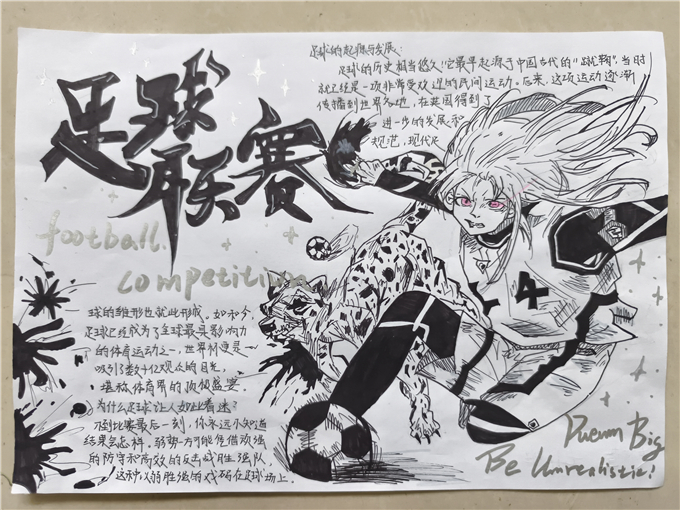 足球
联赛
football
competition
足球的起源与发展:
足球的历史相当悠久!它最早起源于中国古代的"蹴鞠",当时
就已经是一项非常受欢迎的民间运动。后来,这项运动逐渐
传播到世界各地,在英国得到了
进一步的发展和
规范,现代足
球的雏形也就此形成。如今,
足球已经成为了全球最具影响力
的体育运动之一,世界杯更是
吸引了数十亿观众的目光,
堪称体育界的顶级盛宴。
为什么足球让人如此着迷?
不到比赛最后一刻,你永远不知道
结果会怎样。弱势一方可能凭借顽强
的防守和高效的反击战胜强队,
这种以弱胜强的戏码在足球场上
4
Dream Big
Be Unrealistic!